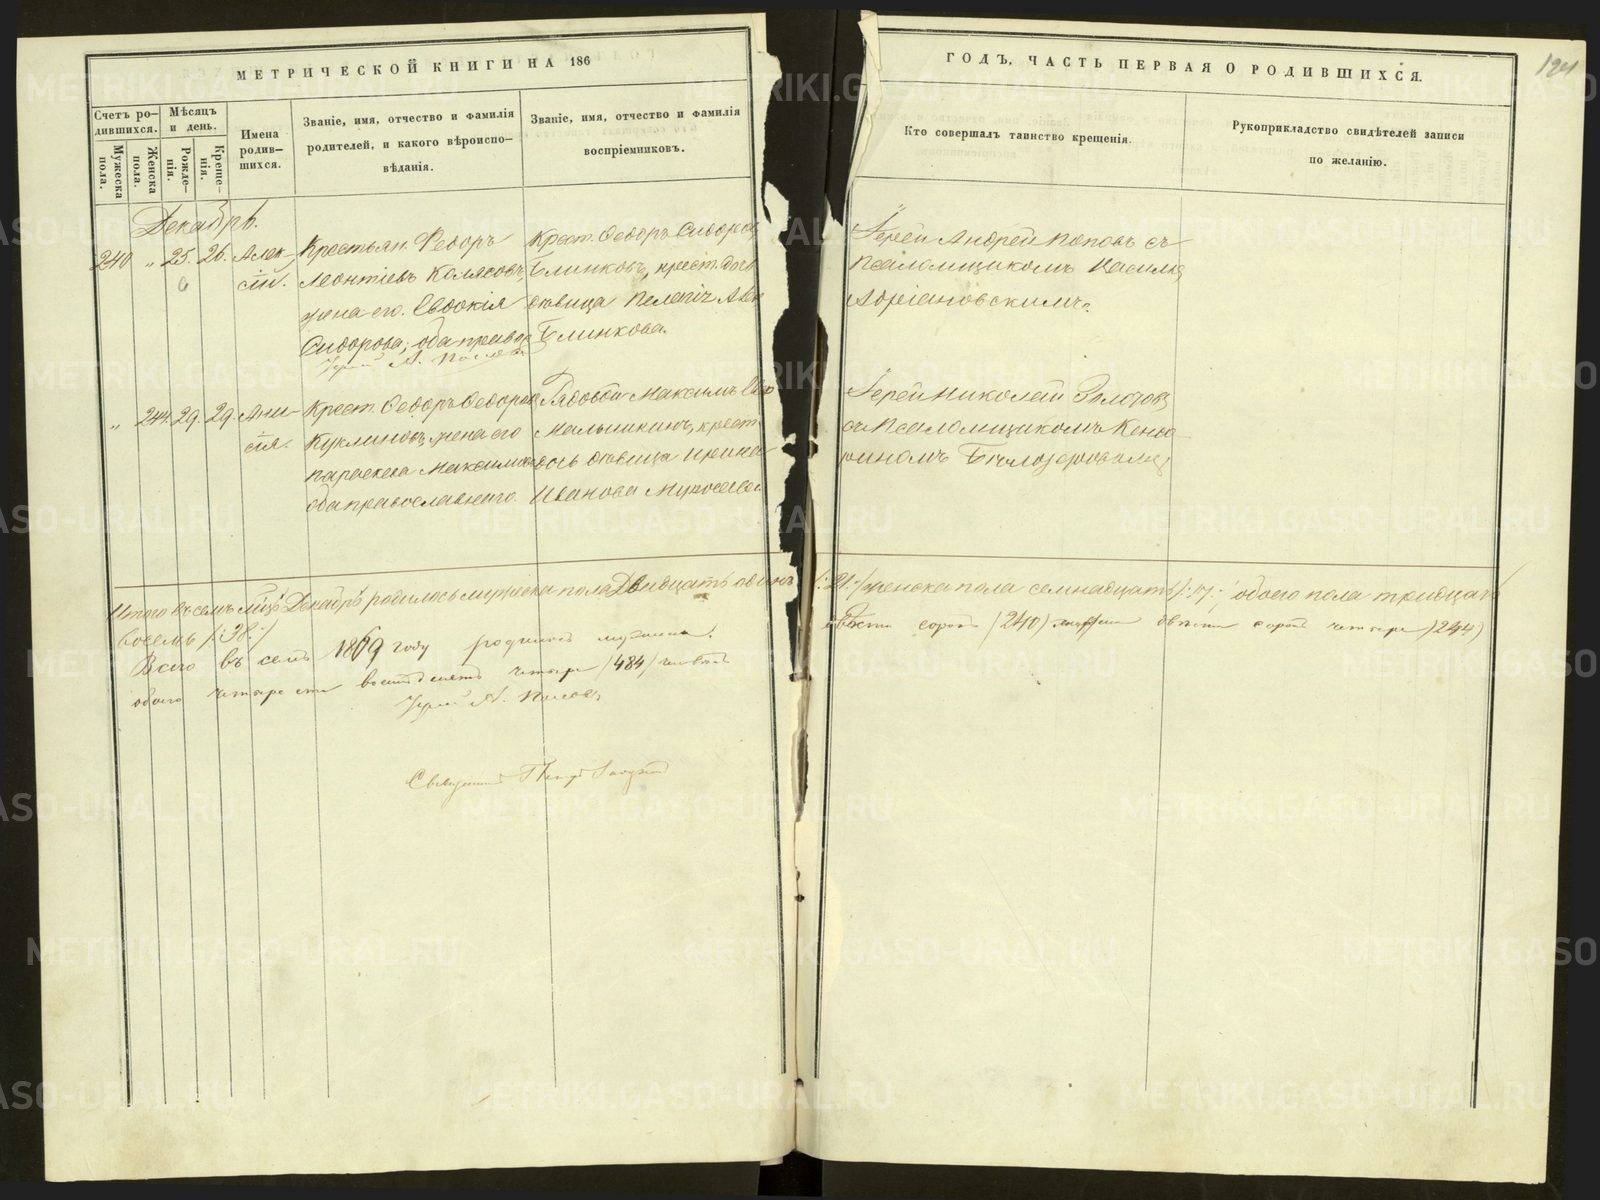 МЕТРИЧЕСКОЙ КНИГИ НА 186
ГОДЪ, ЧАСТЬ ПЕРВАЯ О РОДИВШИХСЯ.
Счетъ ро-
дившихся.
Мужеска
пола.
Женска
пола.
Мѣсяцъ
и день.
Рожде-
нія.
Креще-
нія.
Имена
родив-
шихся.
Званіе, имя, отчество и фамилія
родителей, и какого вѣроиспо-
вѣданія.
Званіе, имя, отчество и фамилія
воспріемниковъ.
Кто совершалъ таинство крещенія.
Рукоприкладство свидѣтелей записи
по желанію.
Декабрь.
240 " 25. 26.
Крестьян. Ѳедоръ
Леонтіевъ Колясовъ,
жена его Евдокія
Сидорова, оба правос
Крест. Ѳедоръ Сидоров
Блинковъ, крест. дочь
дѣвица Пелагія
Блинкова.
Іерей Андрей Поповъ съ
псаломщикомъ
Адріановскимъ.
Іерей А. Поповъ
" 244. 29. 29. Ани-
сія.
Крест. Ѳедоръ Ѳедоров
Куклиновъ, жена его
Параскева Максимова
оба православнаго.
Рядовой Максимъ
Мальшкинъ, крест.
дочь дѣвица Ирина
Иванова
Іерей Николай Золотов
съ псаломщикомъ
Бѣлозеровымъ
Итого въ семъ м-цѣ Декабрѣ родилось мужеска пола двадцать одинъ /:21:/ женска пола семнадцать /:17:/ обоего пола тридцать
восемь /:38:/
Всего въ семъ 1869 году родилось мужеска
двѣсти сорокъ (240) женска двѣсти сорокъ четыре (244)
обоего четыреста восемьдесятъ четыре (484) человѣкъ
Іерей А. Поповъ
Священникъ
METRIKI.GASO-URAL.RU